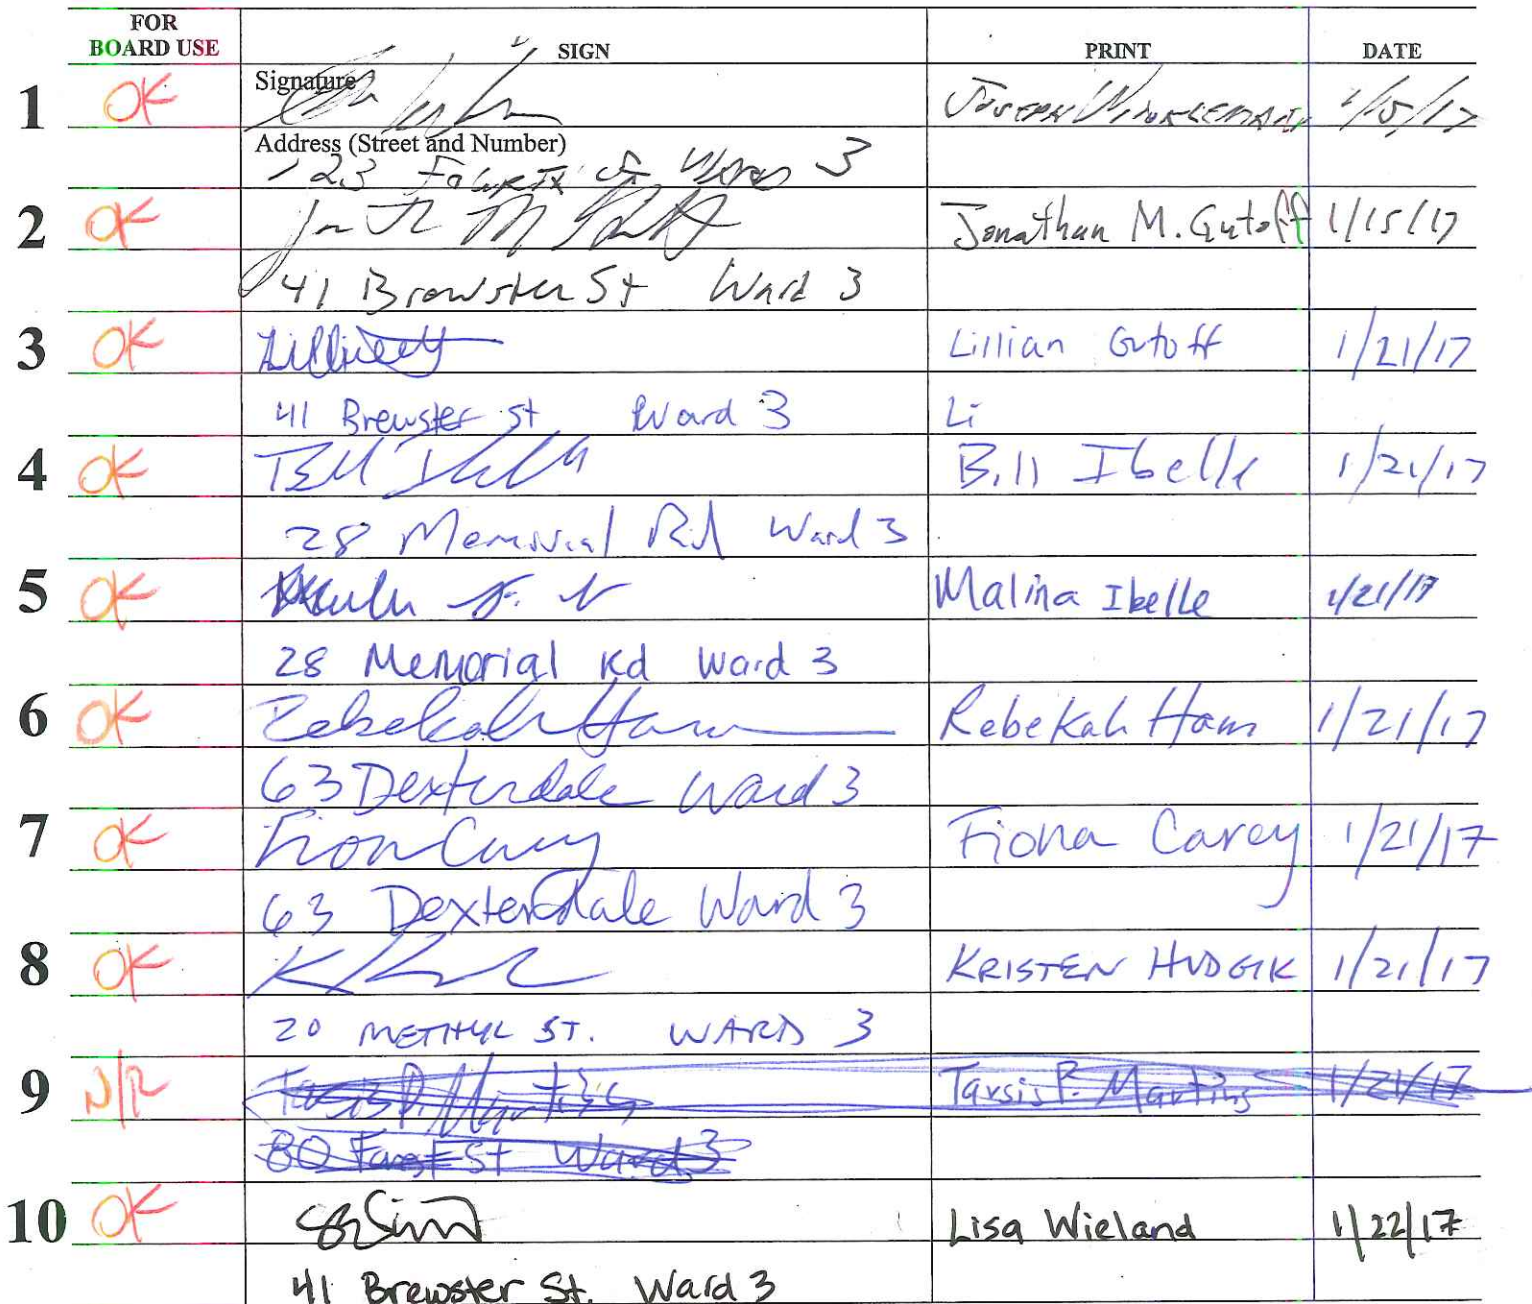 FOR BOARD USE SIGN PRINT DATE
1 OK Signature Joseph Winkleman 1/15/17
Address (Street and Number)
123 Fourth St Ward 3
2 OK Jonathan M. Gutoff 1/15/17
41 Brewster St Ward 3
3 OK Lillian Gutoff 1/21/17
41 Brewster St Ward 3 Li
4 OK Bill Ibelle Bill Ibelle 1/21/17
28 Memorial Rd Ward 3
5 OK Malina Ibelle 1/21/17
28 Memorial Rd Ward 3
6 OK Rebekah Ham Rebekah Ham 1/21/17
63 Dexterdale Ward 3
7 OK Fiona Carey Fiona Carey 1/21/17
63 Dexterdale Ward 3
8 OK KRISTEN 1/21/17
20 METHYL ST. WARD 3
9 N/R Tarsis P. Martins Tarsis P. Martins 1/21/17
80 St Ward 3
10 OK Lisa Wieland 1/22/17
41 Brewster St. Ward 3